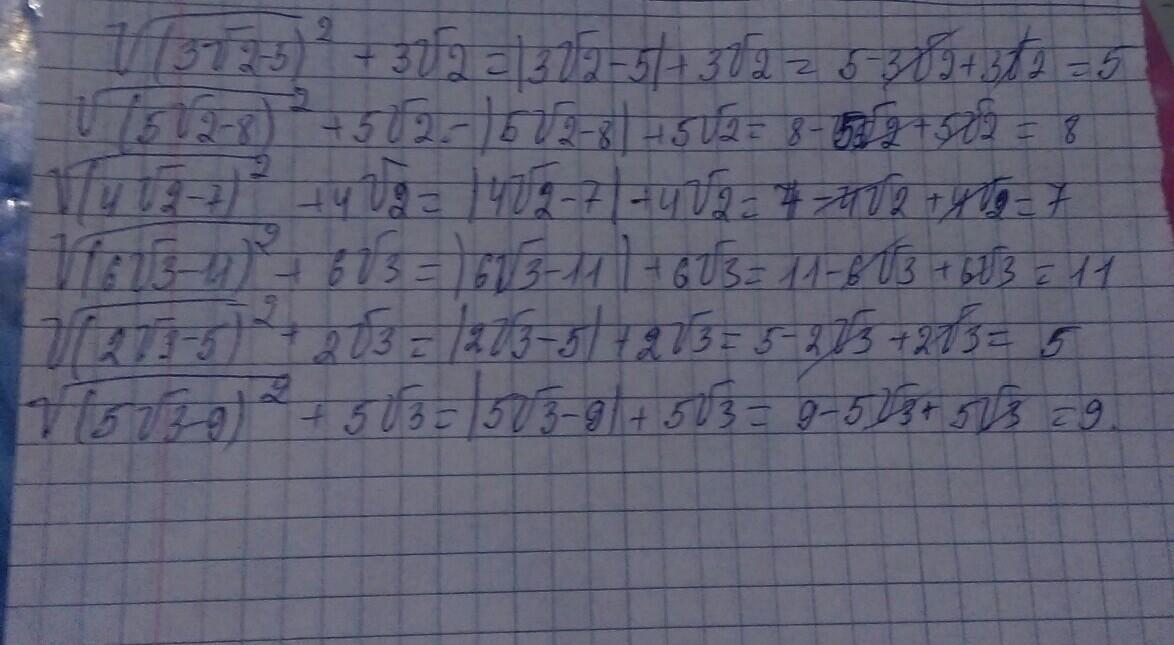 √(3√2-5)² + 3√2 = |3√2-5| + 3√2 = 5-3√2+3√2 = 5
√(5√2-8)² + 5√2 = |5√2-8| + 5√2 = 8-5√2+5√2 = 8
√(4√2-7)² + 4√2 = |4√2-7| + 4√2 = 7-4√2+4√2 = 7
√(6√3-11)² + 6√3 = |6√3-11| + 6√3 = 11-6√3+6√3 = 11
√(2√3-5)² + 2√3 = |2√3-5| + 2√3 = 5-2√3+2√3 = 5
√(5√3-9)² + 5√3 = |5√3-9| + 5√3 = 9-5√3+5√3 = 9.